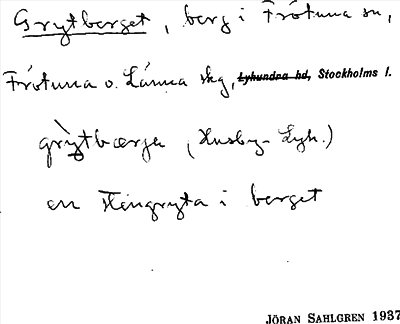 Grytberget, berg i Frötuna sn,
Frötuna o. Länna skg, Lyhundra hd, Stockholms l.
grỳtbærjε (Husby-Lyh.)
en stengryta i berget
JÖRAN SAHLGREN 1937